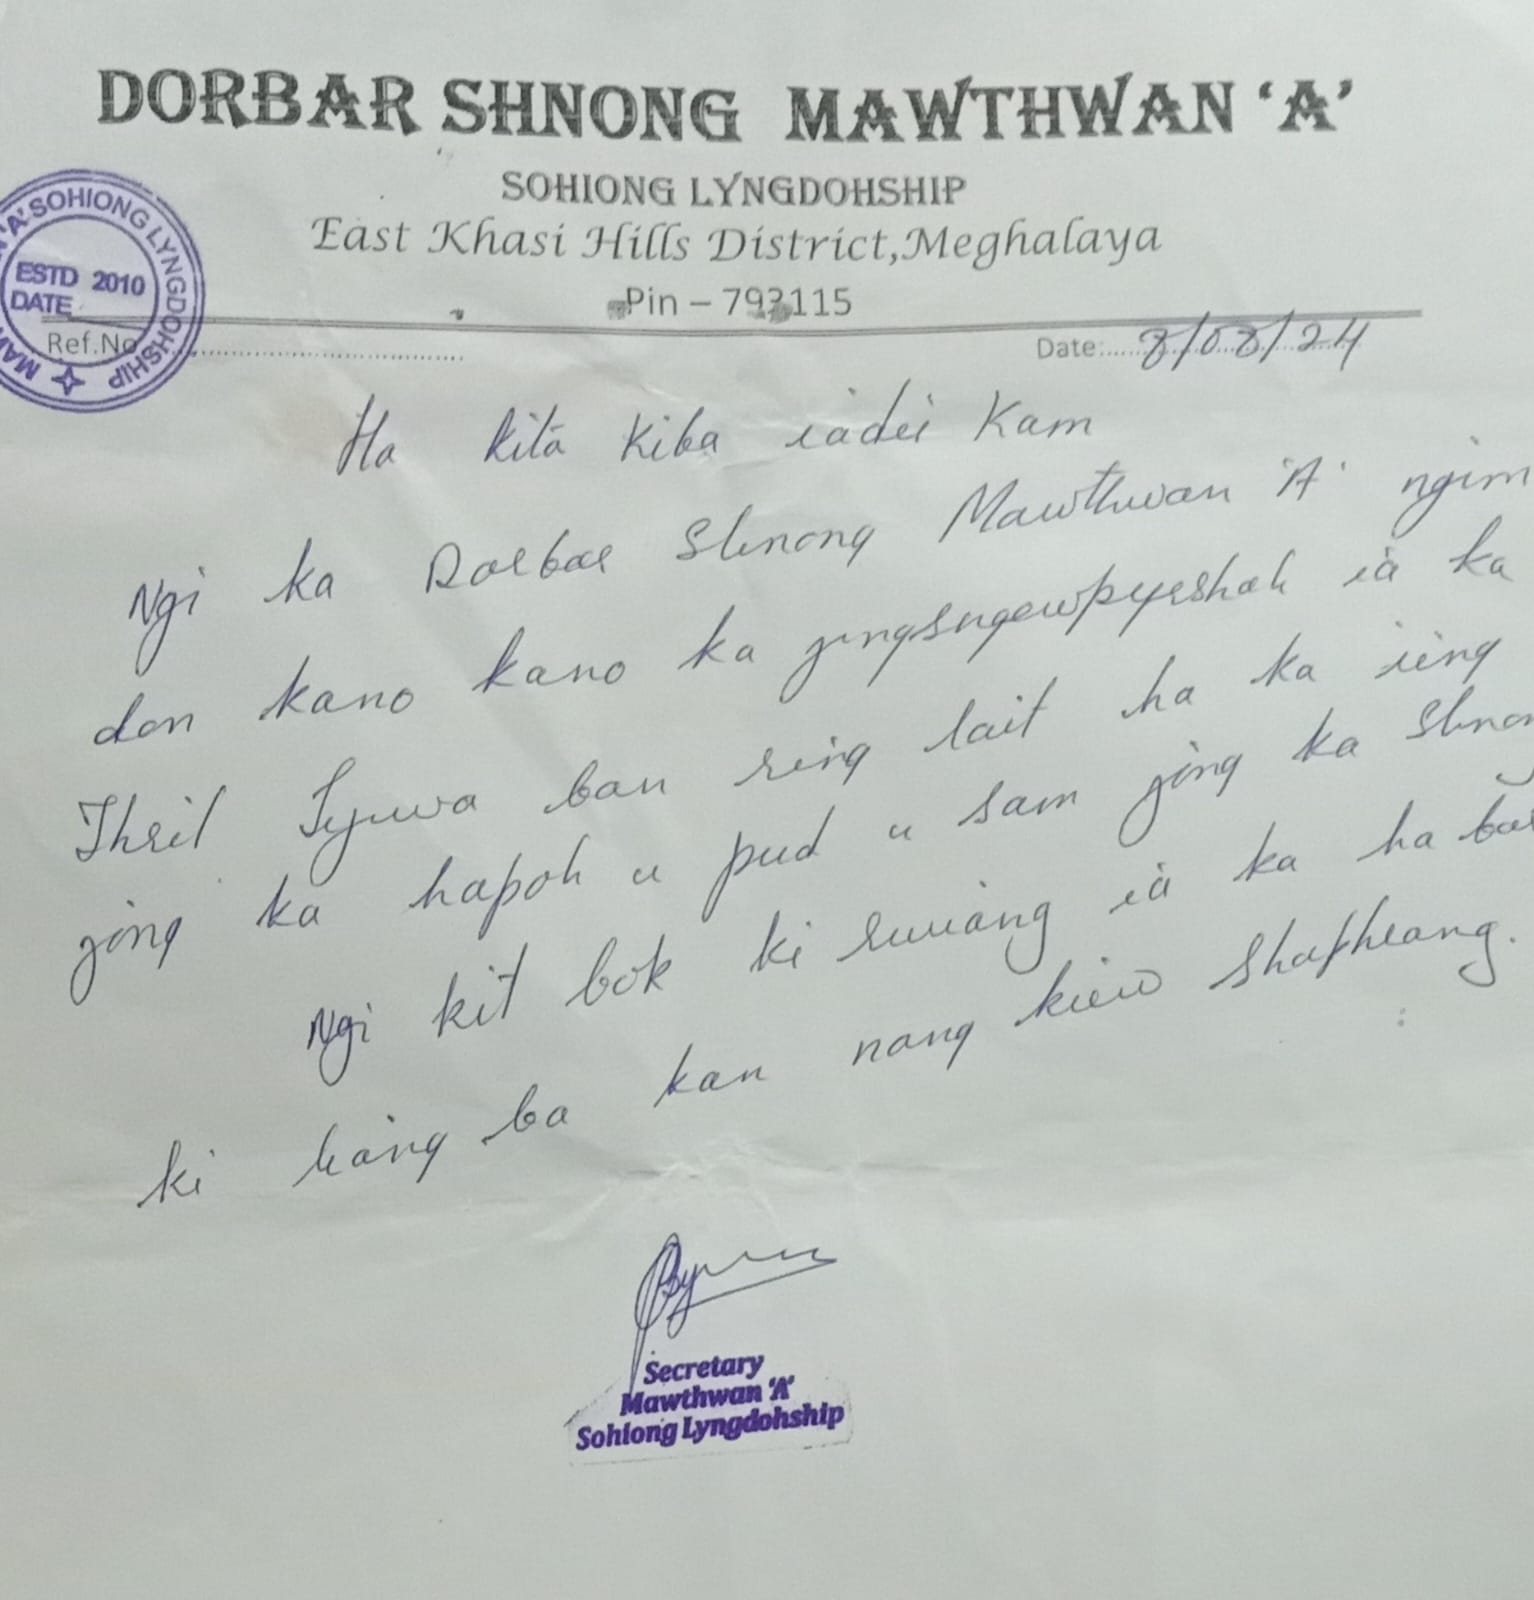 DORBAR SHNONG MAWTHWAN 'A'
SOHIONG LYNGDOHSHIP
East Khasi Hills District, Meghalaya
Pin – 793115
'A' SOHIONG LYNGDOHSHIP
ESTD 2010
DATE
Ref.No
Date: 8/08/24
Ha kita kiba iadei Kam
Ngi ka Dorbar Shnong Mawthwan 'A' ngim
don kano kano ka jingsngewpyrshah ia ka
Thril Tynwa ban ring lait ha ka ïeng
jong ka hapoh u pud u sam jong ka Shnong
Ngi kit bok ki ia ka ha
ki ba kan nang kiew shaphrang.
Secretary
Mawthwan 'A'
Sohiong Lyngdohship